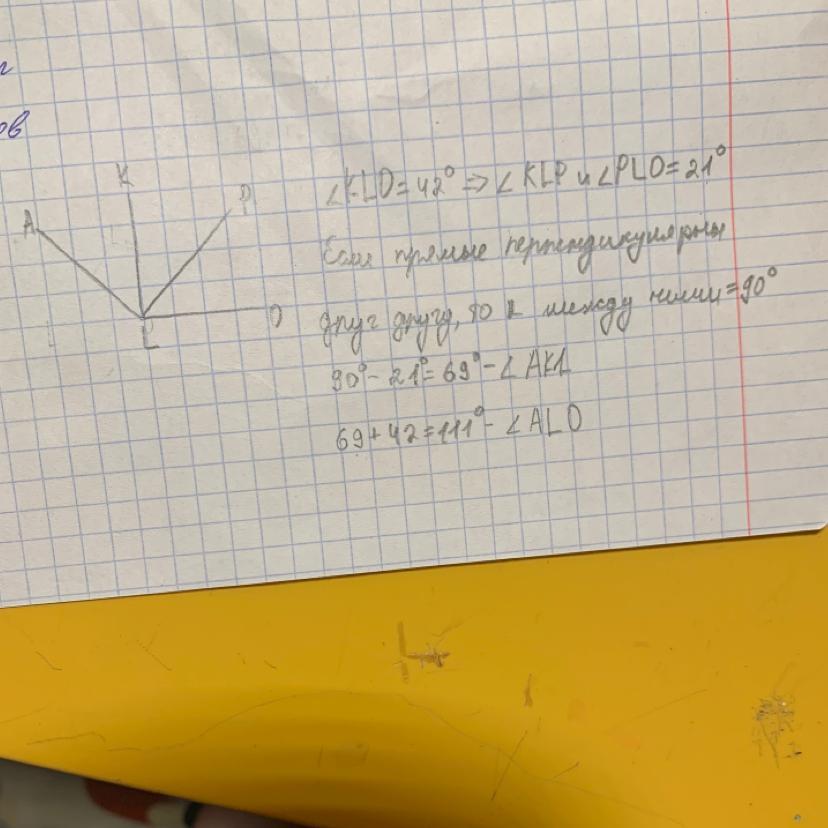 ов
K
P
A
L
O
∠KLO=42° => ∠KLP и ∠PLO=21°
Если прямые перпендикулярны
друг другу, то ∠ между ними=90°
90°-21°=69°-∠AKL
69+42=111°-∠ALO